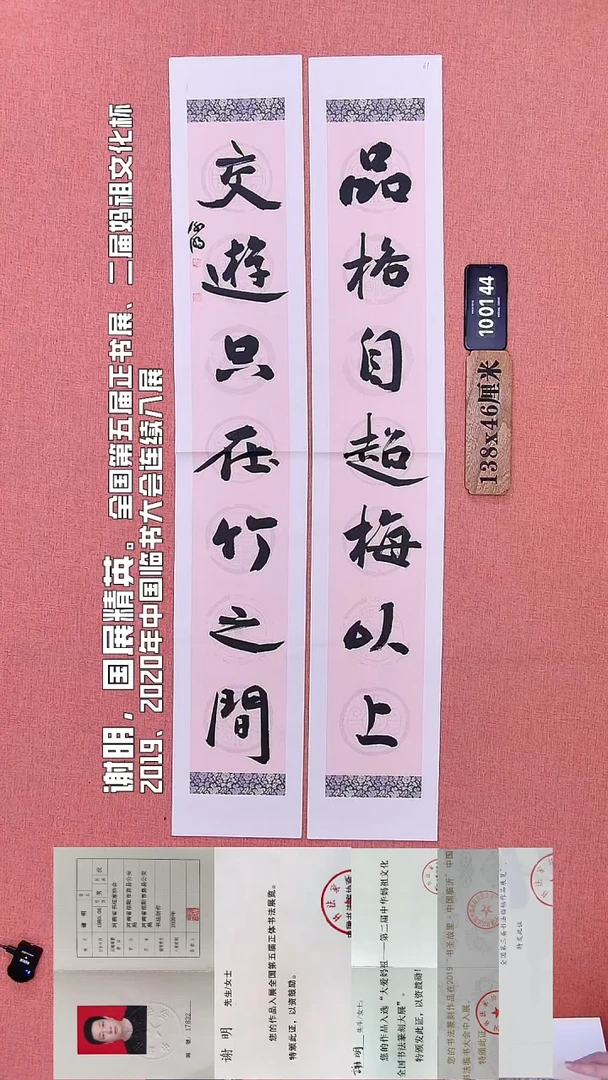 品格自超梅以上
交遊只在竹之間
谢明，国展精英。全国第五届正书展、二届妈祖文化杯
2019、2020年中国临书大会连续入展
100144
138x46厘米
编号：17832
谢 明 先生/女士
您的作品入展全国第五届正体书法展览。
特颁此证，以资鼓励。
谢明 先生/女士:
您的作品入选“大爱妈祖——第二届中华妈祖文化
全国书法篆刻大展”。
特颁发此证，以资鼓励!
您的书法篆刻作品在2019·书圣故里·中国临沂·中国
书法临书大会中入展
特颁此证
全国第三届书法临帖作品展览”，
特发此证